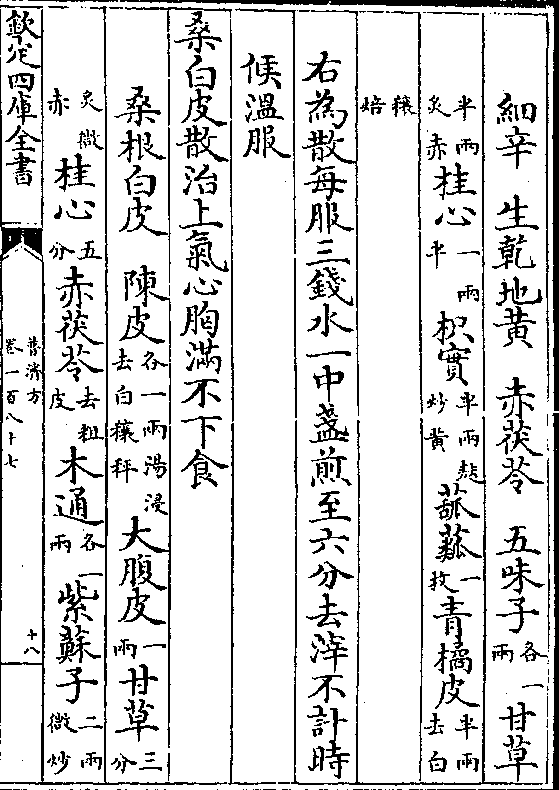 細辛　生乾地黃　赤茯苓　五味子各一兩　甘草
半兩炙赤　桂心一兩半　枳實半兩麩炒黃　菰蓏一枚　青橘皮半兩去白
穰焙
右為散每服三錢水一中盞煎至六分去滓不計時
候溫服
桑白皮散治上氣心胸滿不下食
桑根白皮　陳皮各一兩湯浸去白穰秤　大腹皮一兩　甘草三分
炙微赤　桂心五分　赤茯苓去粗皮　木通各一兩　紫蘇子二兩微炒
欽定四庫全書
普濟方
卷一百八十七
十八